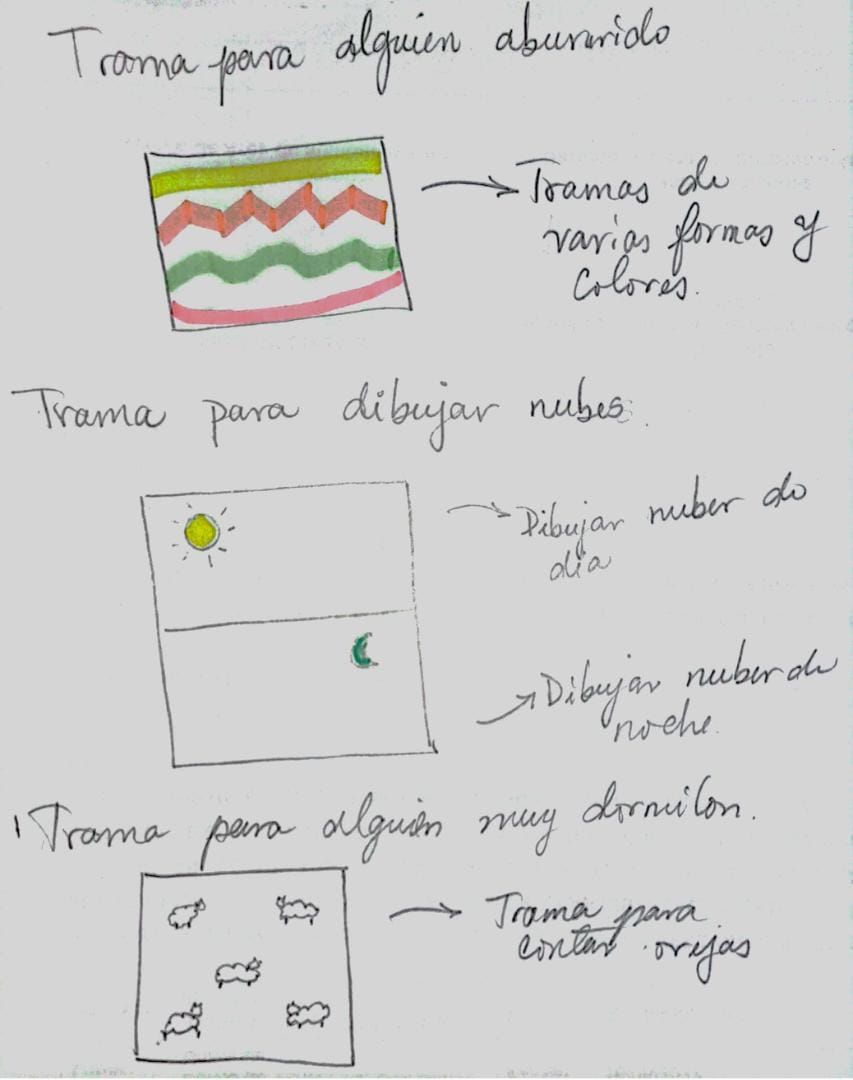 Trama para alguien abururido
Tramas de
varias formas y
colores.
Trama para dibujar nubes.
Dibujar nuber de
dia
Dibujar nuber de
noche.
Trama para alguien muy dormilon.
Trama para
contar orejas